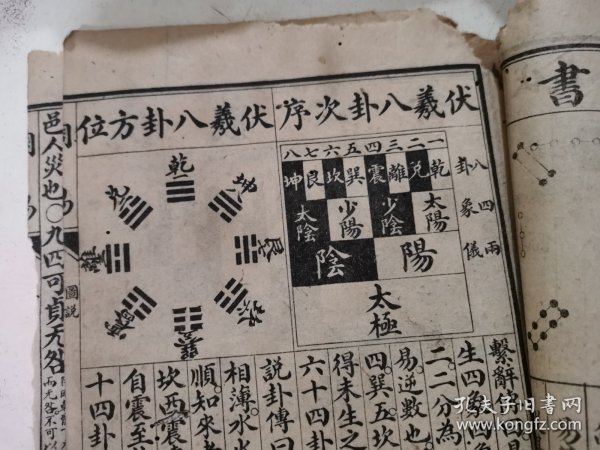 書
伏羲八卦次序
一二三四五六七八
乾兌離震巽坎艮坤
八卦
四象
兩儀
太陽
少陰
少陽
太陰
陽
陰
太極
繫辭
生四四
二二分為
易逆數也
四巽五坎
得未生之
六十四卦
伏羲八卦方位
乾
說卦傳曰
相薄水
順知來
坎西震
自震至
十四卦
圖說
邑人災也○九四可貞无咎
孔夫子旧书网
book.kongfz.com